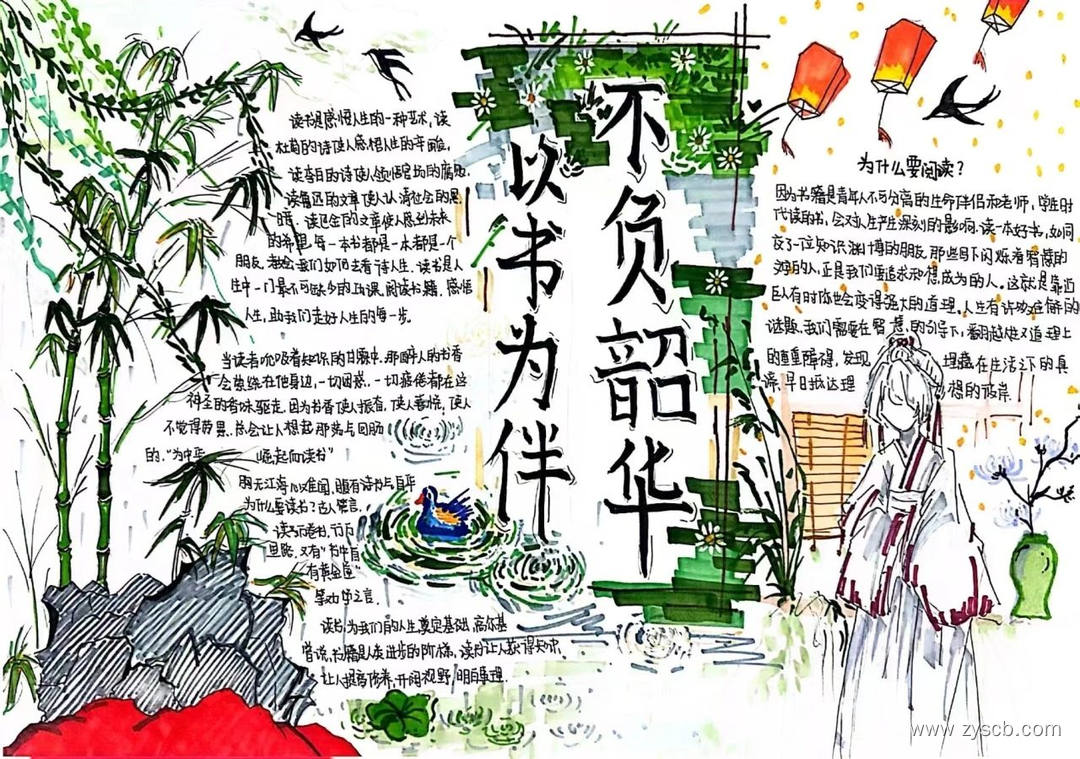 不负韶华
以书为伴
读书是感悟人生的一种艺术,读
杜甫的诗使人感悟人生的辛酸,
读李白的诗使人领悟官场的腐败,
读鲁迅的文章使人认清社会的黑
暗,读巴金的文章使人感到未来
的希望,每一本书都是一本都是一个
朋友,教会我们如何去看待人生.读书是人
生中一门最不可缺少的功课,阅读书籍,感悟
人生,助我们走好人生的每一步。
当读者吮吸着知识的甘露中,那醉人的书香
会萦绕在他身边,一切困惑,一切疲倦都在这
神圣的香味驱走,因为书香使人振奋,使人喜悦,使人
不觉得劳累,总会让人想起那先与回肠
的,“为中华 崛起而读书”
胸无江海心难阔,眼有诗书
为什么要读书?古人常言,
读万卷书,行万
里路,又有“书中自
有黄金屋”
之言.
读书,为我们的人生奠定基础,高尔基
曾说,书籍是人类进步的阶梯,读书让人获得知识,
让人提高修养,开阔视野,明白事理.
为什么要阅读?
因为书籍是青年人不可分离的生命伴侣和老师,学生时
代读的书,会对人生产生深刻的影响.读一本好书,如同
交了一位知识渊博的朋友,那些写下闪烁着智慧的
的人,正是我们要追求和想成为的人。这就是靠近
巨人有时你也会变得强大的道理.人生有许劝难解的
谜题,我们需要在智慧的引导下,翻越歧义道理上
的重重障碍,发现 埋藏在生活之下的真
谛,早日抵达理 想的彼岸.
www.zyscb.com